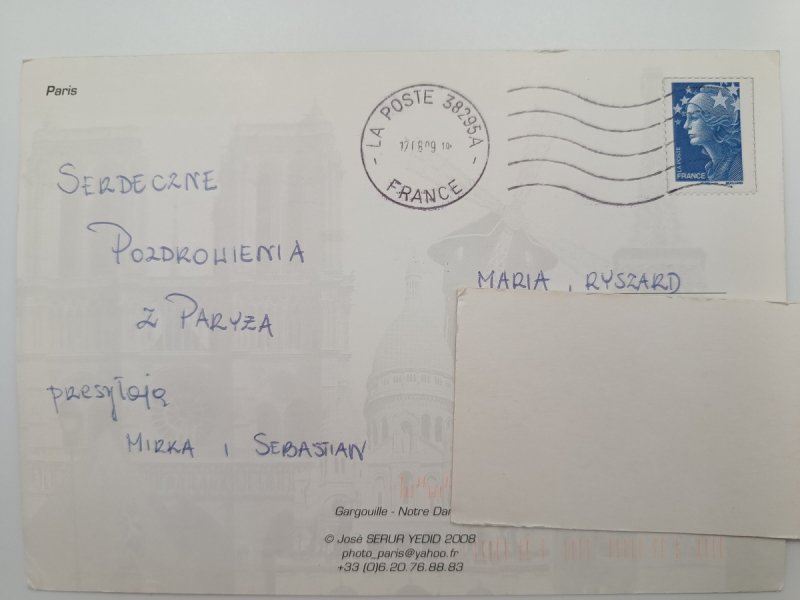 Paris
LA POSTE 38295A
FRANCE
LA POSTE
FRANCE
SERDECZNE
POZDROWIENIA
Z PARYŻA
przesyłają
MIRKA i SEBASTIAN
MARIA, RYSZARD
Gargouille - Notre
© José SERUR YEDID 2008
photo_paris@yahoo.fr
+33 (0)6.20.76.88.83